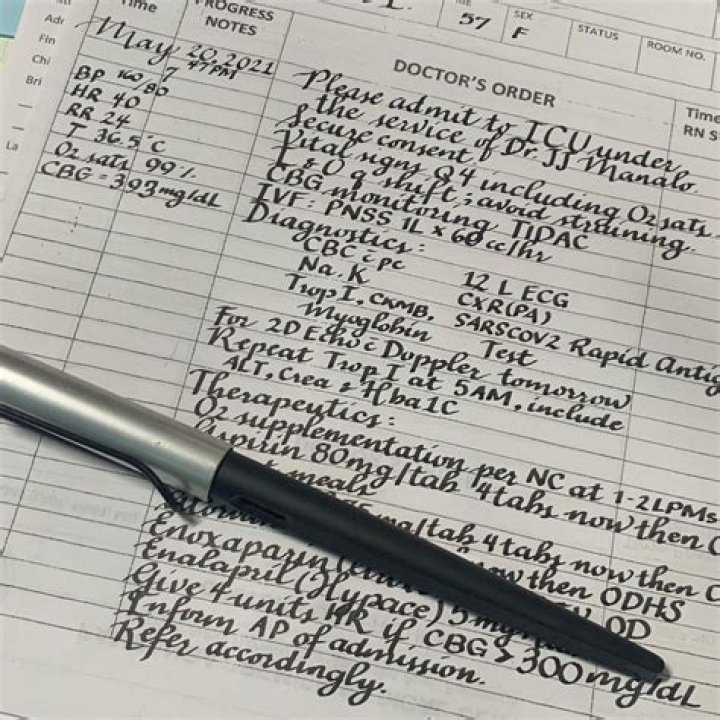 Time
PROGRESS NOTES
57
SEX
F
STATUS
ROOM NO.
Adr
Fin
Chi
Bri
La
May 20, 2021
7
47PM
BP 160/80
HR 40
RR 24
T 36.5°C
O2 sats 99%
CBG = 393 mg/dL
DOCTOR'S ORDER
Time
RN S
Please admit to ICU under
the service of Dr. JJ Manalo.
Secure consent
Vital signs Q4 including O2 sats
I & O q shift ; avoid straining.
CBG monitoring TIDAC
IVF: PNSS 1L x 60 cc/hr
Diagnostics:
CBC c pc 12 L ECG
Na, K CXR(PA)
Trop I, CKMB, SARSCOV2 Rapid Antig
Myoglobin Test
For 2D Echo c Doppler tomorrow
Repeat Trop I at 5AM, include
ALT, Crea & Hba1C
Therapeutics:
O2 supplementation per NC at 1-2 LPMs
Aspirin 80mg/tab 4tabs now then
meals
mg/tab 4 tabs now then
now then ODHS
Enoxaparin OD
Enalapril (Hypace) 5 mg
Give 4 units HR if CBG > 300 mg/dL
Inform AP of admission.
Refer accordingly.